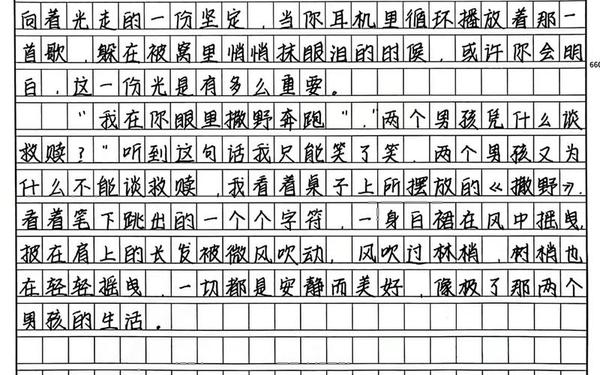 向着光走的一份坚定，当你耳机里循环播放着那一
首歌，躲在被窝里悄悄抹眼泪的时候，或许你会明
白，这一份光是有多么重要。
660
“我在你眼里撒野奔跑”，“两个男孩凭什么谈
救赎？”听到这句话我只能笑了笑，两个男孩又为
什么不能谈救赎，我看着桌子上所摆放的《撒野》，
看着笔下跳出的一个个字符，一身白裙在风中摇曳，
披在肩上的长发被微风吹动，风吹过林梢，树梢也
在轻轻摇曳，一切都是安静而美好，像极了那两个
男孩的生活。